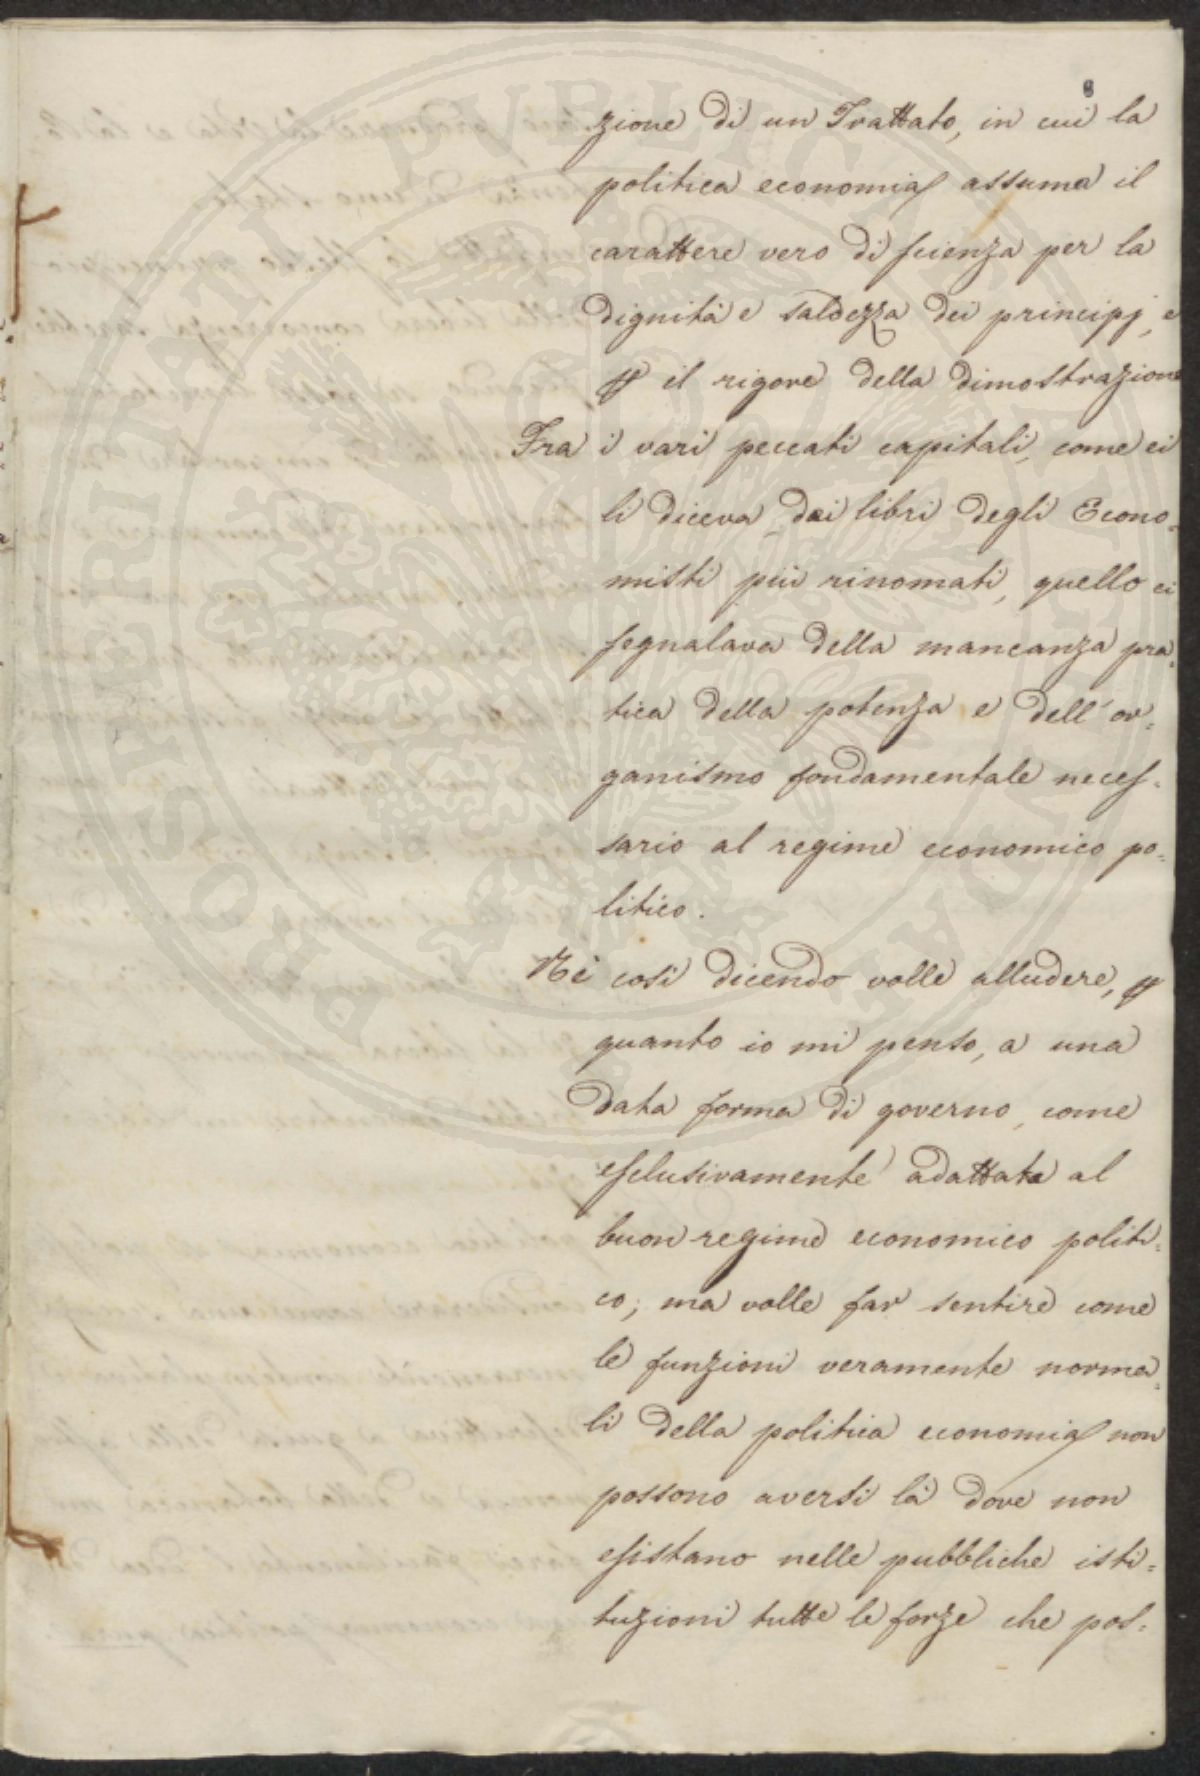 8
zione di un Trattato, in cui la
politica economia assuma il
carattere vero di scienza per la
dignità e saldezza dei principj, e
il rigore della dimostrazione
Fra i vari peccati capitali, come ei
li diceva, dai libri degli Econo=
misti più rinomati, quello ei
segnalava della mancanza pra=
tica della potenza e dell'or=
ganismo fondamentale neces=
sario al regime economico po=
litico.
Nè così dicendo volle alludere,
quanto io mi penso, a una
data forma di governo, come
esclusivamente adattata al
buon regime economico politi=
co; ma volle far sentire come
le funzioni veramente norma=
li della politica economia non
possono aversi là dove non
esistano nelle pubbliche isti=
tuzioni tutte le forze che pos=
PROSPERITATI PUBLICAE AUGENDAE